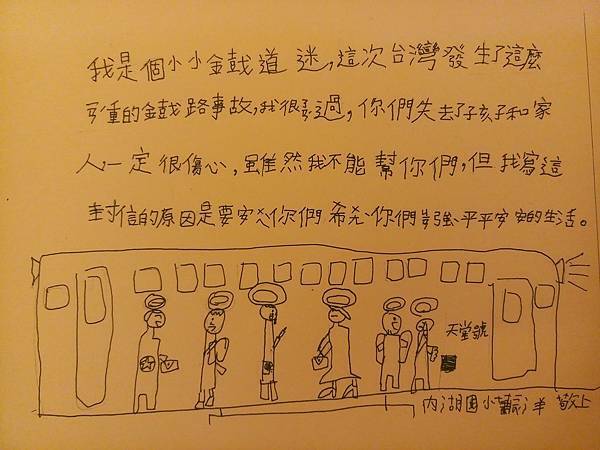 我是個小小金鼓道迷,這次台灣發生了這麼
嚴重的金鼓路事故,我很難過,你們失去了孩子和家
人一定很傷心,雖然我不能幫你們,但我寫這
封信的原因是要安慰你們希望你們堅強、平平安安的生活。
天堂號
內湖國小 敬上